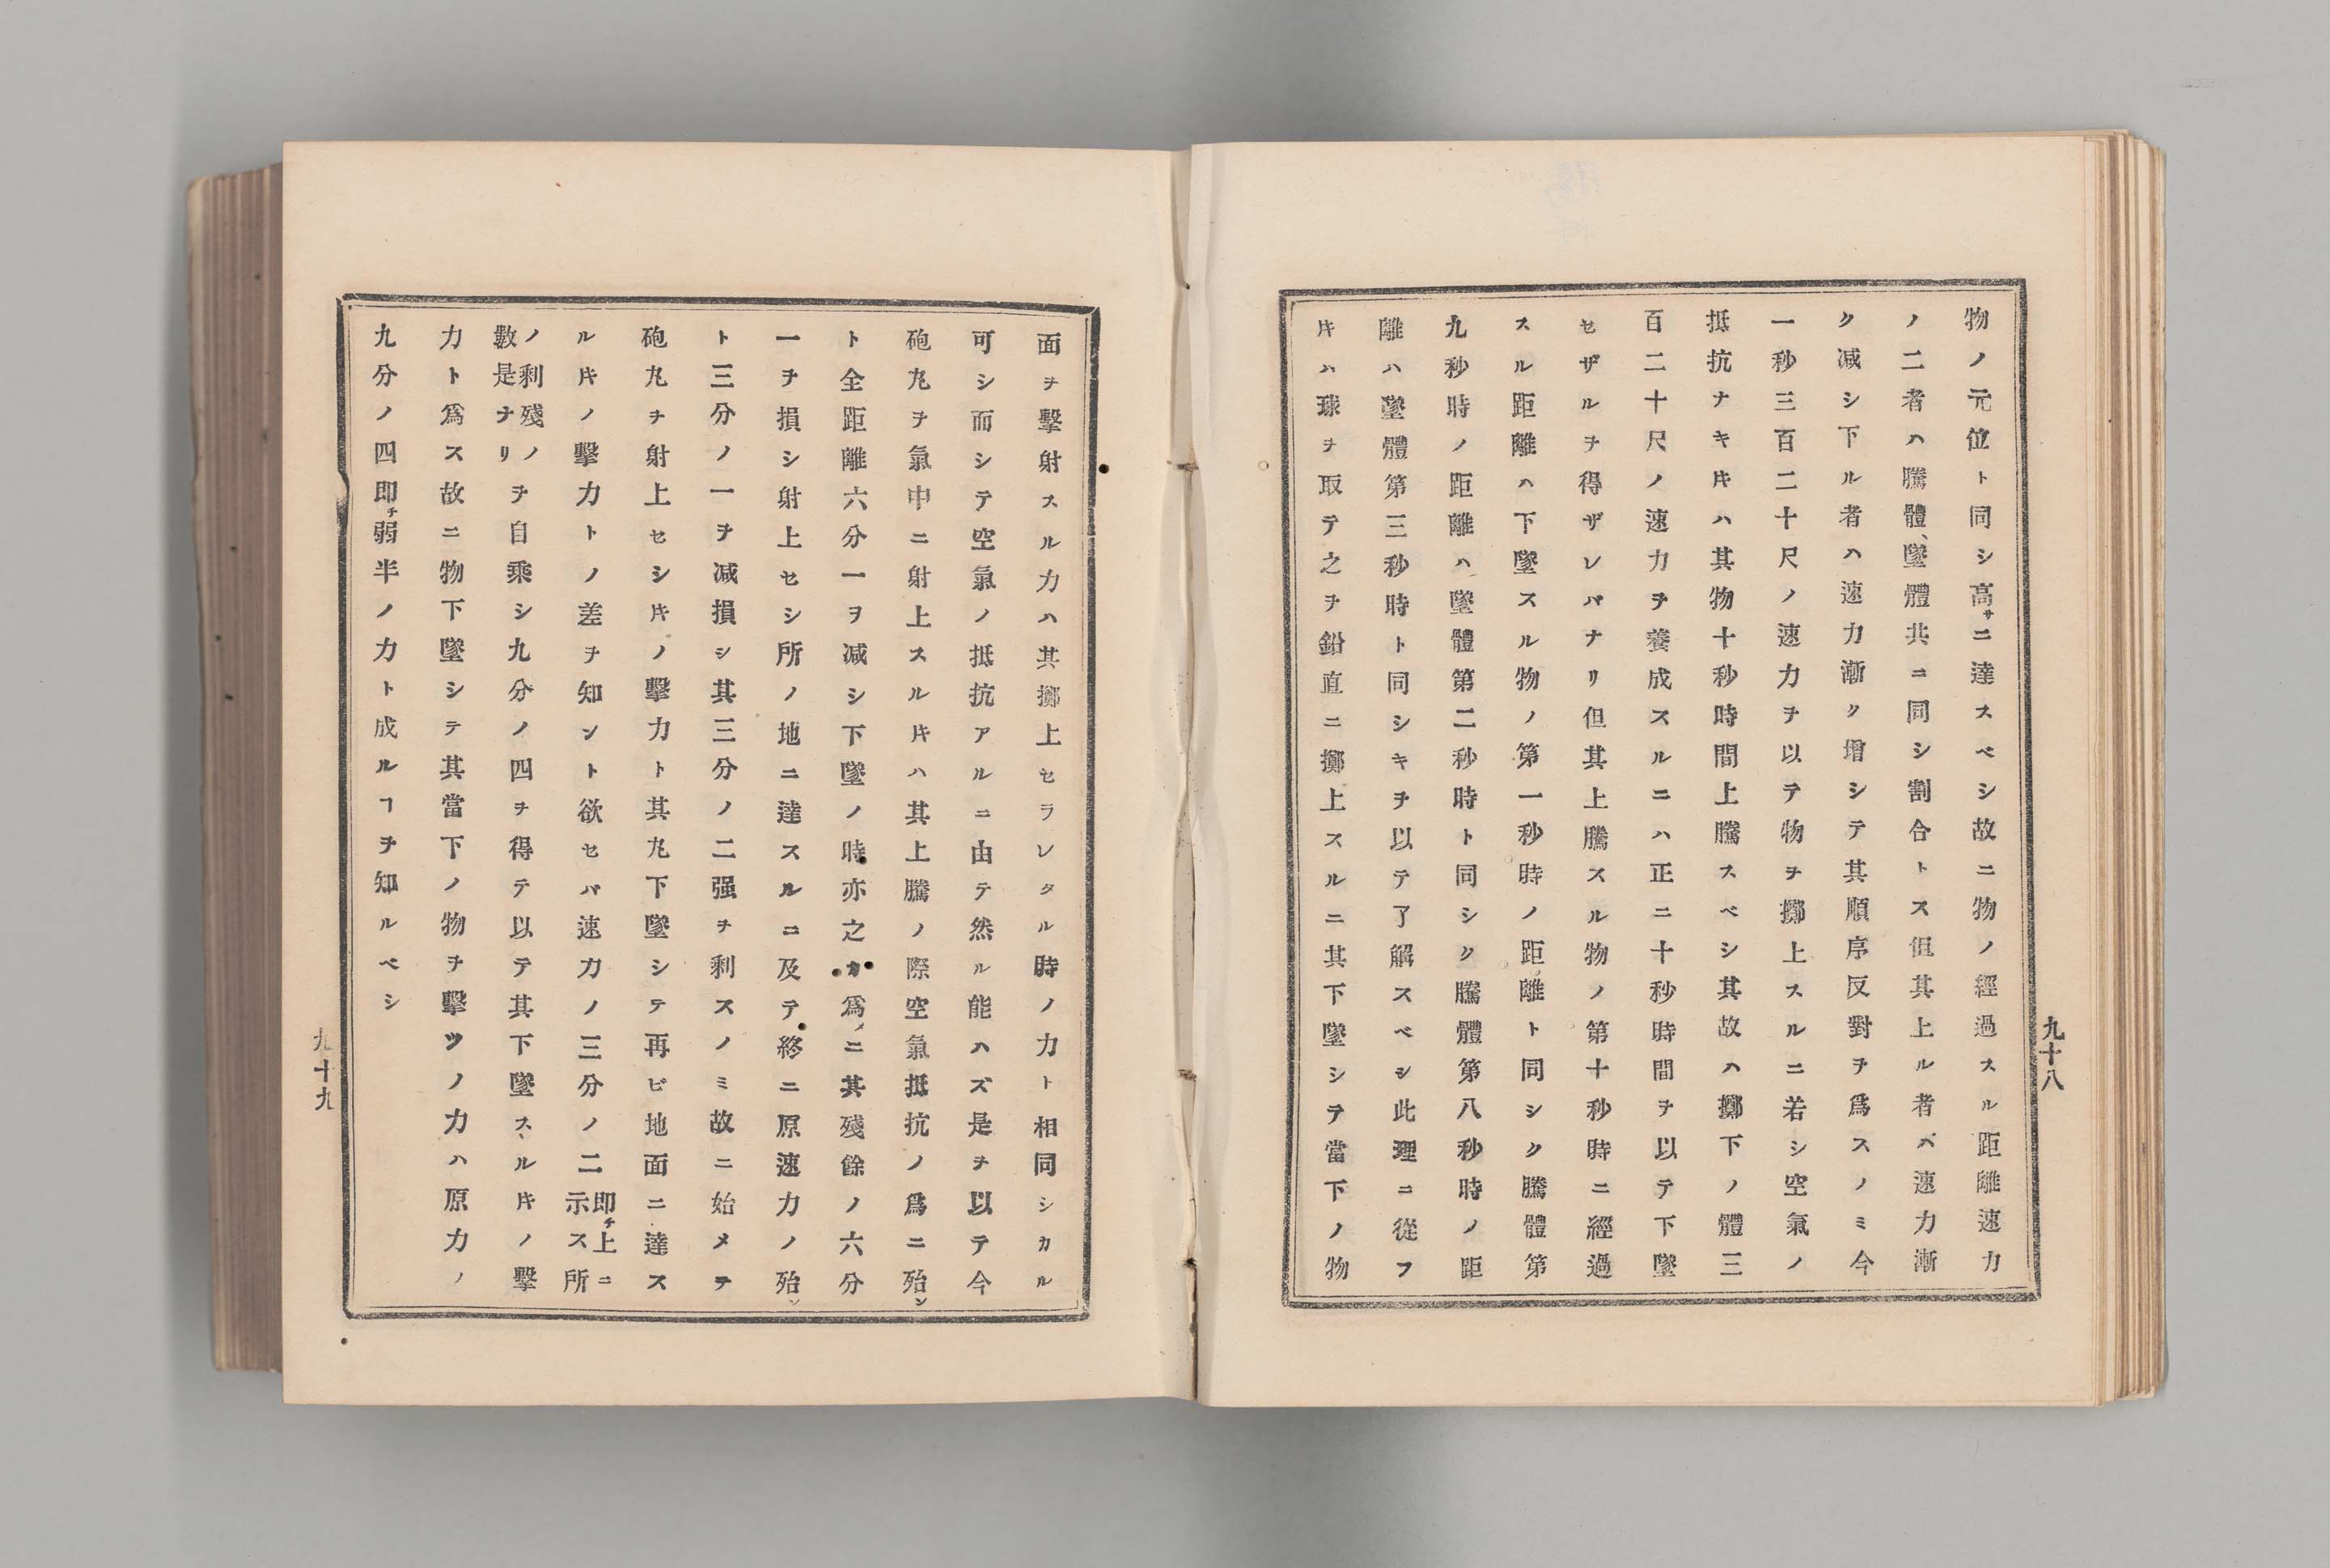 物ノ元位ト同シ高サニ達スベシ故ニ物ノ經過スル距離速力
ノ二者ハ騰體、墜體共ニ同シ割合トス但其上ル者バ速力漸
ク减シ下ル者ハ速力漸ク增シテ其順序反對ヲ爲スノミ今
一秒三百二十尺ノ速力ヲ以テ物ヲ擲上スルニ若シ空氣ノ
抵抗ナキ𪜈ハ其物十秒時間上騰スベシ其故ハ擲下ノ體三
百二十尺ノ速力ヲ養成スルニハ正ニ十秒時間ヲ以テ下墜
セザルヲ得ザレバナリ但其上騰スル物ノ第十秒時ニ經過
スル距離ハ下墜スル物ノ第一秒時ノ距離ト同シク騰體第
九秒時ノ距離ハ墜體第二秒時ト同シク騰體第八秒時ノ距
離ハ墜體第三秒時ト同シキヲ以テ了解スベシ此理ニ從フ
𪜈ハ球ヲ取テ之ヲ鉛直ニ擲上スルニ其下墜シテ當下ノ物
九十八
面ヲ擊射スル力ハ其擲上セラレタル時ノ力ト相同シカル
可シ而シテ空氣ノ抵抗アルニ由テ然ル能ハズ是ヲ以テ今
砲丸ヲ氣中ニ射上スル𪜈ハ其上騰ノ際空氣抵抗ノ爲ニ殆ン
ト全距離六分一ヲ减シ下墜ノ時亦之カ爲メニ其殘餘ノ六分
一ヲ損シ射上セシ所ノ地ニ達スルニ及テ終ニ原速力ノ殆ン
ト三分ノ一ヲ减損シ其三分ノ二强ヲ利スノミ故ニ始メテ
砲丸ヲ射上セシ𪜈ノ擊力ト其丸下墜シテ再ビ地面ニ達ス
ル𪜈ノ擊力トノ差ヲ知ント欲セバ速力ノ三分ノ二即チ上ニ示ス所
ノ利殘ノ數是ナリヲ自乘シ九分ノ四ヲ得テ以テ其下墜スル𪜈ノ擊
力ト爲ス故ニ物下墜シテ其當下ノ物ヲ擊ツノ力ハ原力ノ
九分ノ四即チ弱半ノ力ト成ルヿヲ知ルベシ
九十九